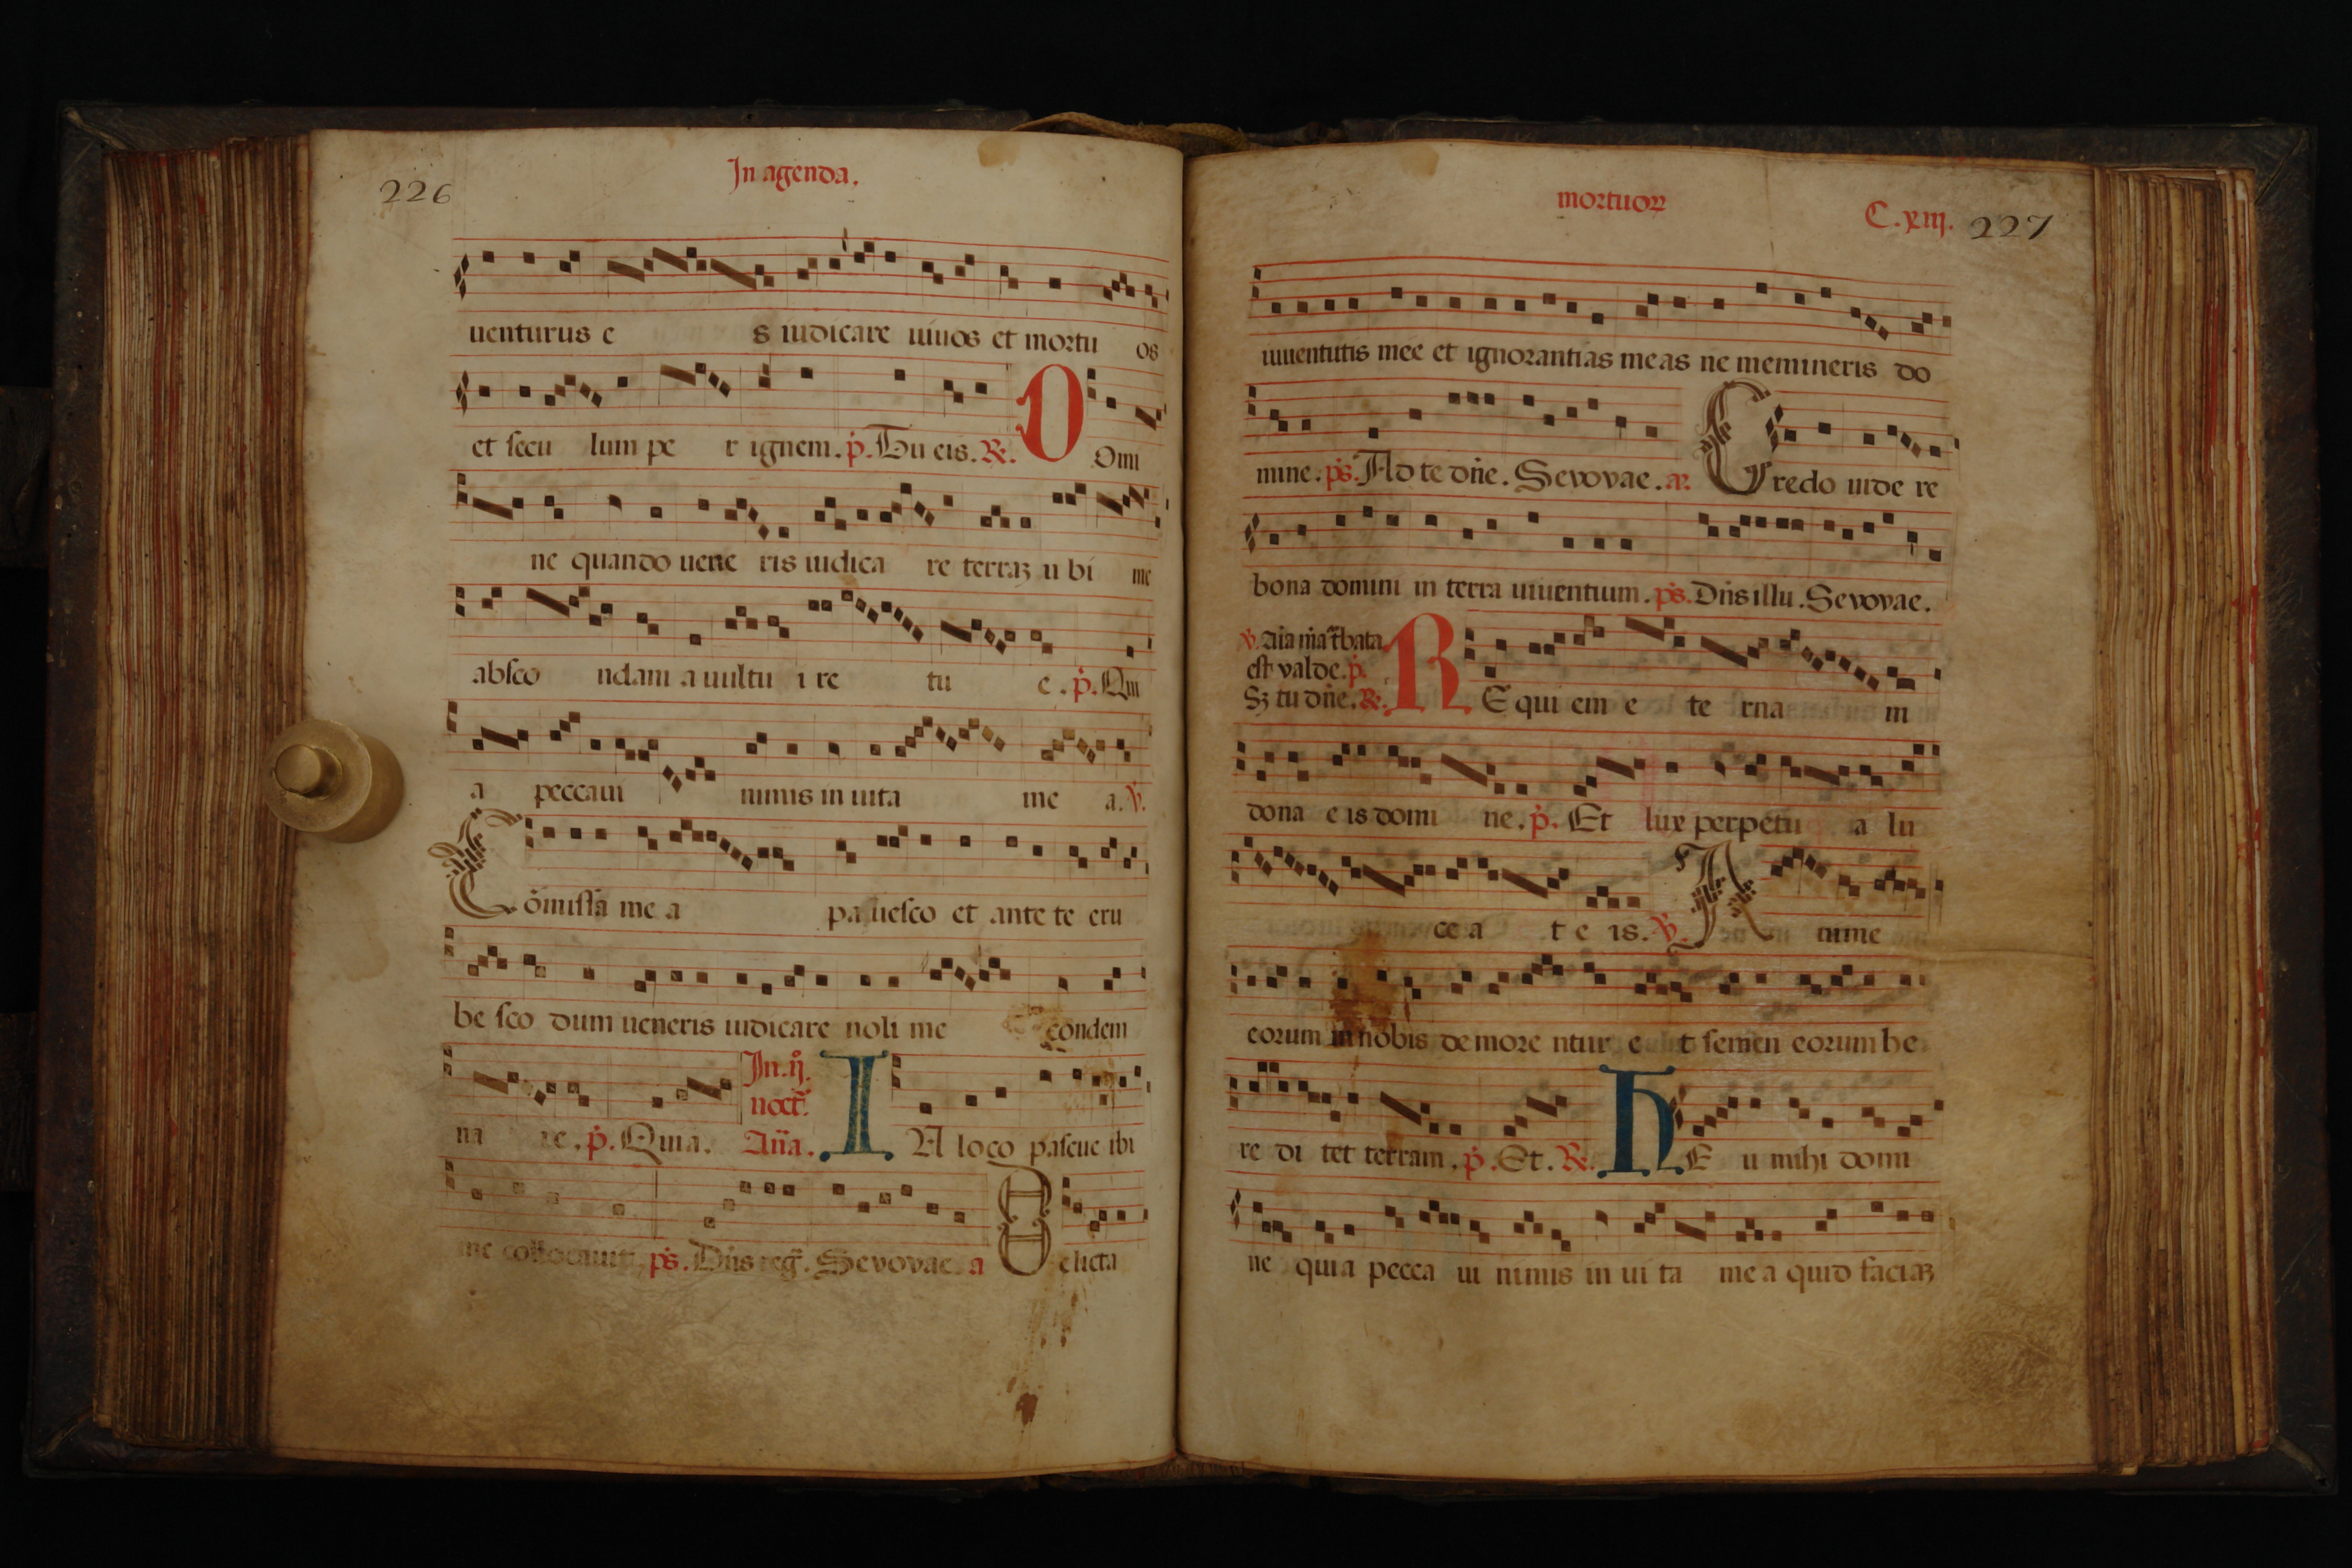 226
In agenda.
uenturus e s iudicare uiuos et mortu os
et secu lum pe r ignem. p̃. Tu eis. R̃. D Omi
ne quando uene ris iudica re terraꝫ u bi me
absco ndam a uultu i re tu e. p̃. Qui
a peccaui nimis in uita me a. v̓.
Cõmissã me a pa uesco et ante te eru
be sco dum ueneris iudicare noli me condem
na re. p̃. Quia.
In .ij.
noct̃.
Añã. I N loco pascue ibi
me collocauit. p̃s. Dñs reg̃. Sevovae. a Delicta
mortuoꝝ
C.xiij. 227
iuuentutis mee et ignorantias meas ne memineris do
mine. p̃s. Ad te dñe. Sevovae. añ. Credo uide re
bona domini in terra uiuentium. p̃s. Dñs illu. Sevovae.
v̓. Aĩa mã t̃bata
est valde. p̃.
Sꝫ tu dñe. R̃. R E qui em e te rna m
dona e is domi ne. p̃. Et lux perpetu a lu
ce a t e is. v̓. A nime
eorum in nobis demore ntur e t semen eorum he
re di tet terram. p̃. Et. R̃. H E u mihi domi
ne quia pecca ui nimis in ui ta me a quid faciaꝫ